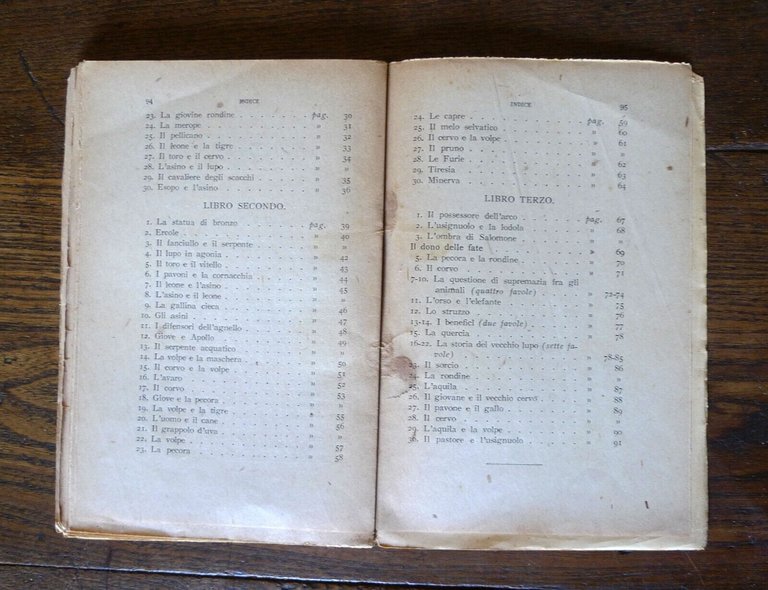 94 INDICE
23. La giovine rondine pag. 30
24. La merope » 31
25. Il pellicano » 32
26. Il leone e la tigre » 33
27. Il toro e il cervo » 34
28. L'asino e il lupo » »
29. Il cavaliere degli scacchi » 35
30. Esopo e l'asino » 36
LIBRO SECONDO.
1. La statua di bronzo pag. 39
2. Ercole » 40
3. Il fanciullo e il serpente » »
4. Il lupo in agonia » 42
5. Il toro e il vitello » 43
6. I pavoni e la cornacchia » 44
7. Il leone e l'asino » »
8. L'asino e il leone » 45
9. La gallina cieca » »
10. Gli asini » 46
11. I difensori dell'agnello » 47
12. Giove e Apollo » 48
13. Il serpente acquatico » 49
14. La volpe e la maschera » »
15. Il corvo e la volpe » 50
16. L'avaro » 51
17. Il corvo » 52
18. Giove e la pecora » 53
19. La volpe e la tigre » »
20. L'uomo e il cane » 55
21. Il grappolo d'uva » 56
22. La volpe » »
23. La pecora » 57
» 58
INDICE 95
24. Le capre pag. 59
25. Il melo selvatico » 60
26. Il cervo e la volpe » 61
27. Il pruno » »
28. Le Furie » 62
29. Tiresia » 63
30. Minerva » 64
LIBRO TERZO.
1. Il possessore dell'arco pag. 67
2. L'usignuolo e la lodola » 68
3. L'ombra di Salomone » »
Il dono delle fate » 69
5. La pecora e la rondine » 70
6. Il corvo » 71
7-10. La questione di supremazia fra gli
animali (quattro favole) » 72-74
11. L'orso e l'elefante » 75
12. Lo struzzo » 76
13-14. I benefici (due favole) » 77
15. La quercia » 78
16-22. La storia del vecchio lupo (sette fa-
vole) » 78-85
23. Il sorcio » 86
24. La rondine » »
25. L'aquila » 87
26. Il giovane e il vecchio cervo » 88
27. Il pavone e il gallo » 89
28. Il cervo » »
29. L'aquila e la volpe » 90
30. Il pastore e l'usignuolo » 91